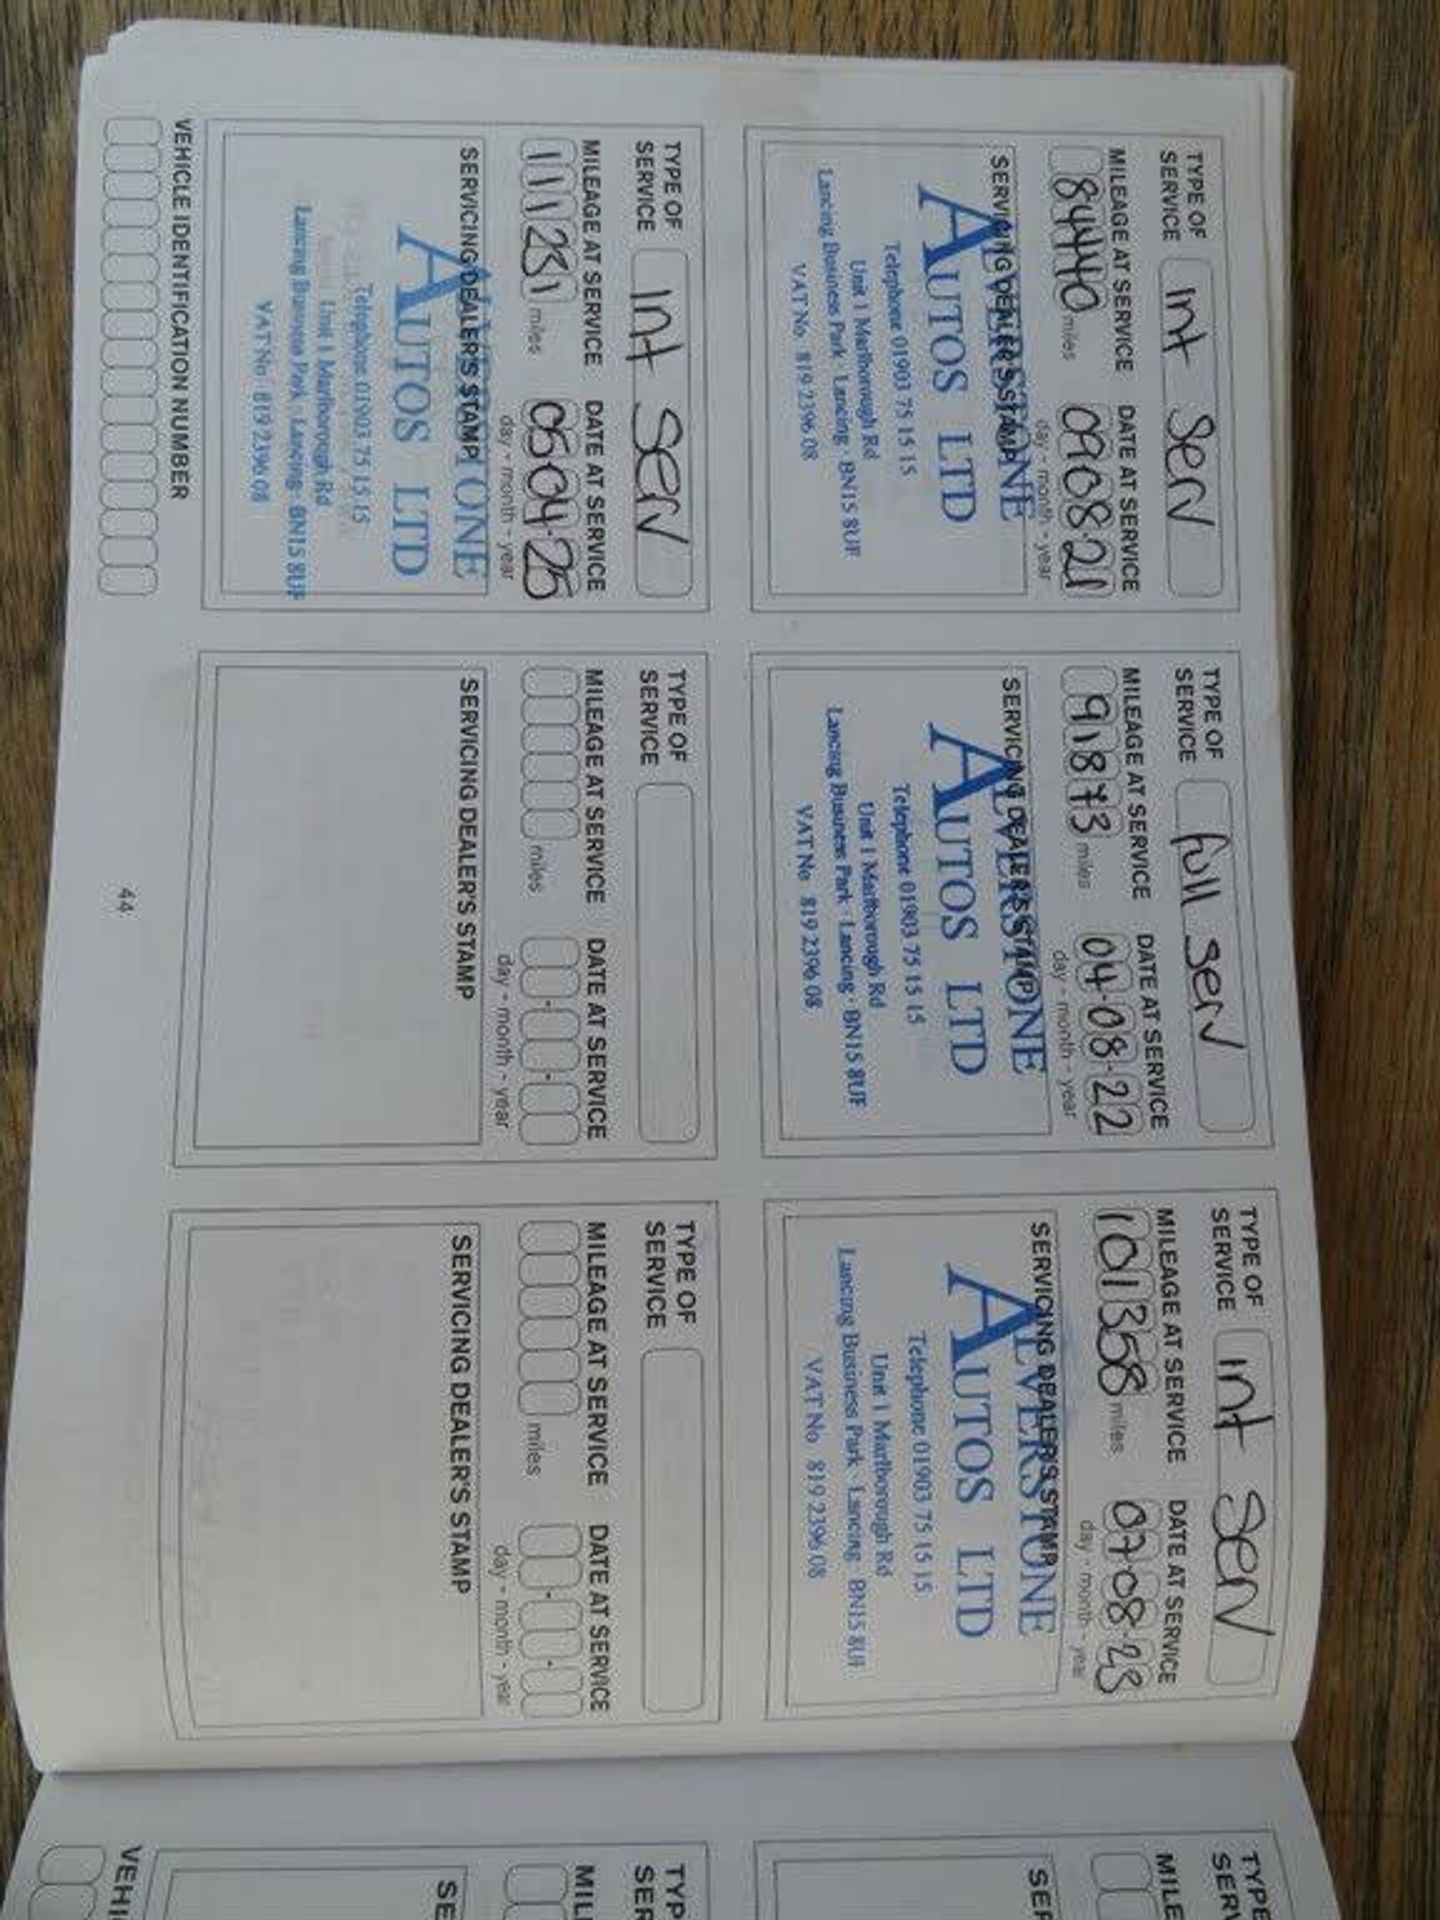 TYPE OF SERVICE Int Serv
MILEAGE AT SERVICE DATE AT SERVICE
84440 miles 09 08 21
day - month - year
SERVICING DEALER'S STAMP
ALVERSTONE
AUTOS LTD
Telephone 01903 75 15 15
Unit 1 Marlborough Rd
Lancing Business Park · Lancing · BN15 8UF
VAT No 819 2396 08
TYPE OF SERVICE full serv
MILEAGE AT SERVICE DATE AT SERVICE
91873 miles 04-08-22
day - month - year
SERVICING DEALER'S STAMP
ALVERSTONE
AUTOS LTD
Telephone 01903 75 15 15
Unit 1 Marlborough Rd
Lancing Business Park · Lancing · BN15 8UF
VAT No 819 2396 08
TYPE OF SERVICE Int Serv
MILEAGE AT SERVICE DATE AT SERVICE
101358 miles 07-08-23
day - month - year
SERVICING DEALER'S STAMP
ALVERSTONE
AUTOS LTD
Telephone 01903 75 15 15
Unit 1 Marlborough Rd
Lancing Business Park · Lancing · BN15 8UF
VAT No 819 2396 08
TYPE OF SERVICE Int Serv
MILEAGE AT SERVICE DATE AT SERVICE
111231 miles 0504-25
day - month - year
SERVICING DEALER'S STAMP
ALVERSTONE
AUTOS LTD
Telephone 01903 75 15 15
Unit 1 Marlborough Rd
Lancing Business Park · Lancing · BN15 8UF
VAT No 819 2396 08
TYPE OF SERVICE
MILEAGE AT SERVICE DATE AT SERVICE
miles
day - month - year
SERVICING DEALER'S STAMP
TYPE OF SERVICE
MILEAGE AT SERVICE DATE AT SERVICE
miles
day - month - year
SERVICING DEALER'S STAMP
VEHICLE IDENTIFICATION NUMBER
44
TYPE
SERV
MILE
SER
TYP
SER
MIL
SE
VEHI